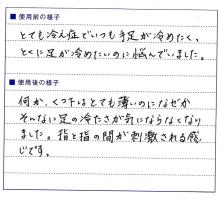 ■使用前の様子
とても冷え症でいつも手足が冷めたく、
とくに足が冷めたいのに悩んでいました。
■使用後の様子
何か、くつ下はとても薄いのになぜか
そんなに足の冷たさが気にならなくなり
ました。指と指の間が刺激される感
じです。